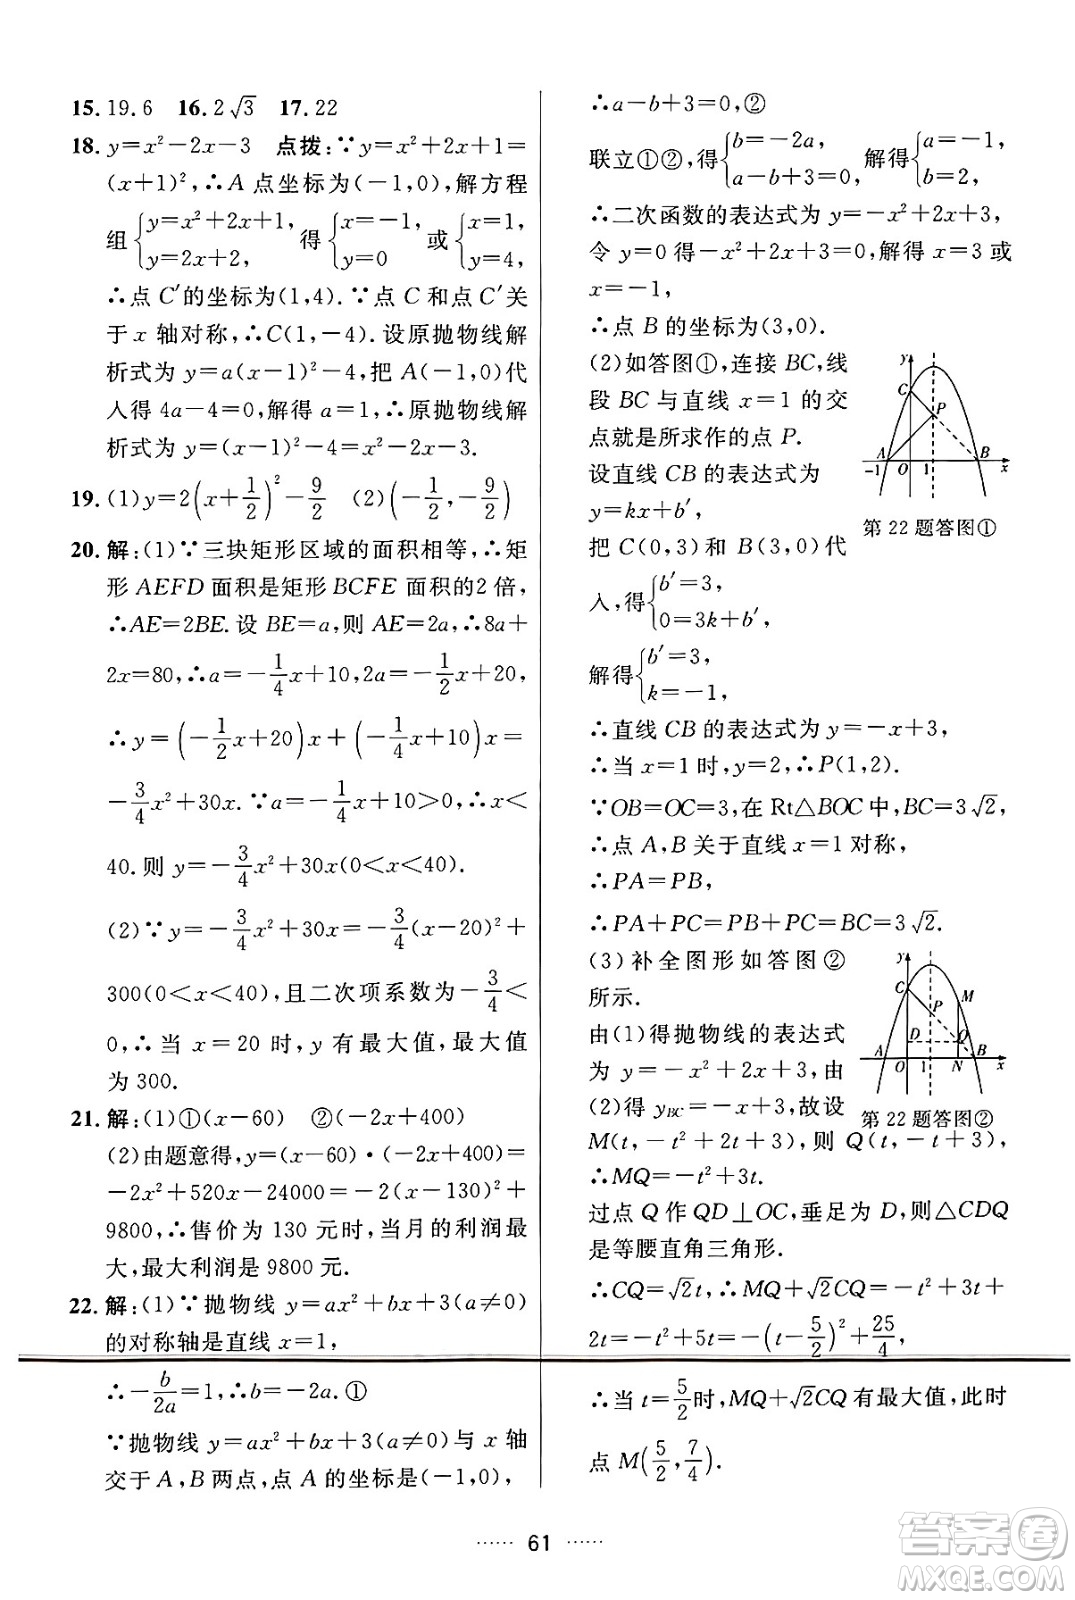 15. 19.6　16. 2√3　17. 22
18. y=x²−2x−3　点拨:∵y=x²+2x+1=
(x+1)²,∴A 点坐标为(−1,0),解方程
组{y=x²+2x+1, y=2x+2, 得{x=−1, y=0 或{x=1, y=4,
∴点 C′的坐标为(1,4).∵点 C 和点 C′关
于 x 轴对称,∴C(1,−4).设原抛物线解
析式为 y=a(x−1)²−4,把 A(−1,0)代
入得 4a−4=0,解得 a=1,∴原抛物线解
析式为 y=(x−1)²−4=x²−2x−3.
19. (1)y=2(x+1/2)²−9/2　(2)(−1/2,−9/2)
20. 解:(1)∵三块矩形区域的面积相等,∴矩
形 AEFD 面积是矩形 BCFE 面积的2 倍,
∴AE=2BE.设 BE=a,则 AE=2a,∴8a+
2x=80,∴a=−1/4x+10,2a=−1/2x+20,
∴y=(−1/2x+20)x+(−1/4x+10)x=
−3/4x²+30x.∵a=−1/4x+10>0,∴x<
40.则 y=−3/4x²+30x(0<x<40).
(2)∵y=−3/4x²+30x=−3/4(x−20)²+
300(0<x<40),且二次项系数为−3/4<
0,∴当 x=20 时,y 有最大值,最大值
为 300.
21. 解:(1)①(x−60)　②(−2x+400)
(2)由题意得,y=(x−60)·(−2x+400)=
−2x²+520x−24000=−2(x−130)²+
9800,∴售价为 130 元时,当月的利润最
大,最大利润是 9800 元.
22. 解:(1)∵抛物线 y=ax²+bx+3(a≠0)
的对称轴是直线 x=1,
∴−b/2a=1,∴b=−2a.①
∵抛物线 y=ax²+bx+3(a≠0)与 x 轴
交于 A,B 两点,点 A 的坐标是(−1,0),
∴a−b+3=0,②
联立①②,得{b=−2a, a−b+3=0, 解得{a=−1, b=2,
∴二次函数的表达式为 y=−x²+2x+3,
令 y=0 得−x²+2x+3=0,解得 x=3 或
x=−1,
∴点 B 的坐标为(3,0).
(2)如答图①,连接 BC,线
段 BC 与直线 x=1 的交
点就是所求作的点 P.
设直线 CB 的表达式为
y=kx+b′,
把 C(0,3)和 B(3,0)代
入,得{b′=3, 0=3k+b′,
y
C
P
A
B
−1 O 1 x
第 22 题答图①
解得{b′=3, k=−1,
∴直线 CB 的表达式为 y=−x+3,
∴当 x=1 时,y=2,∴P(1,2).
∵OB=OC=3,在 Rt△BOC 中,BC=3√2,
∴点 A,B 关于直线 x=1 对称,
∴PA=PB,
∴PA+PC=PB+PC=BC=3√2.
(3)补全图形如答图②
所示.
由(1)得抛物线的表达式
为 y=−x²+2x+3,由
(2)得 y_BC=−x+3,故设
y
C
M
P
D Q
A
B
O 1 N x
第 22 题答图②
M(t,−t²+2t+3),则 Q(t,−t+3),
∴MQ=−t²+3t.
过点 Q 作 QD⊥OC,垂足为 D,则△CDQ
是等腰直角三角形.
∴CQ=√2t,∴MQ+√2CQ=−t²+3t+
2t=−t²+5t=−(t−5/2)²+25/4,
∴当 t=5/2时,MQ+√2CQ有最大值,此时
点 M(5/2,7/4).
······ 61 ······
答案卷
MXQE.COM